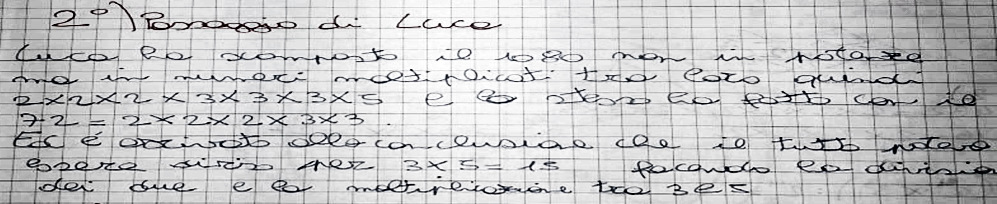 2°) Passaggio di Luca
Luca ha scomposto il 1080 non in potenze
ma in numeri moltiplicati tra loro quindi
2×2×2×3×3×3×5 e lo stesso ha fatto con il
72 = 2×2×2×3×3.
Ed è arrivato alla conclusione che il tutto poteva
essere diviso per 3×5=15 facendo la divisio
dei due e la moltiplicazione tra 3 e 5